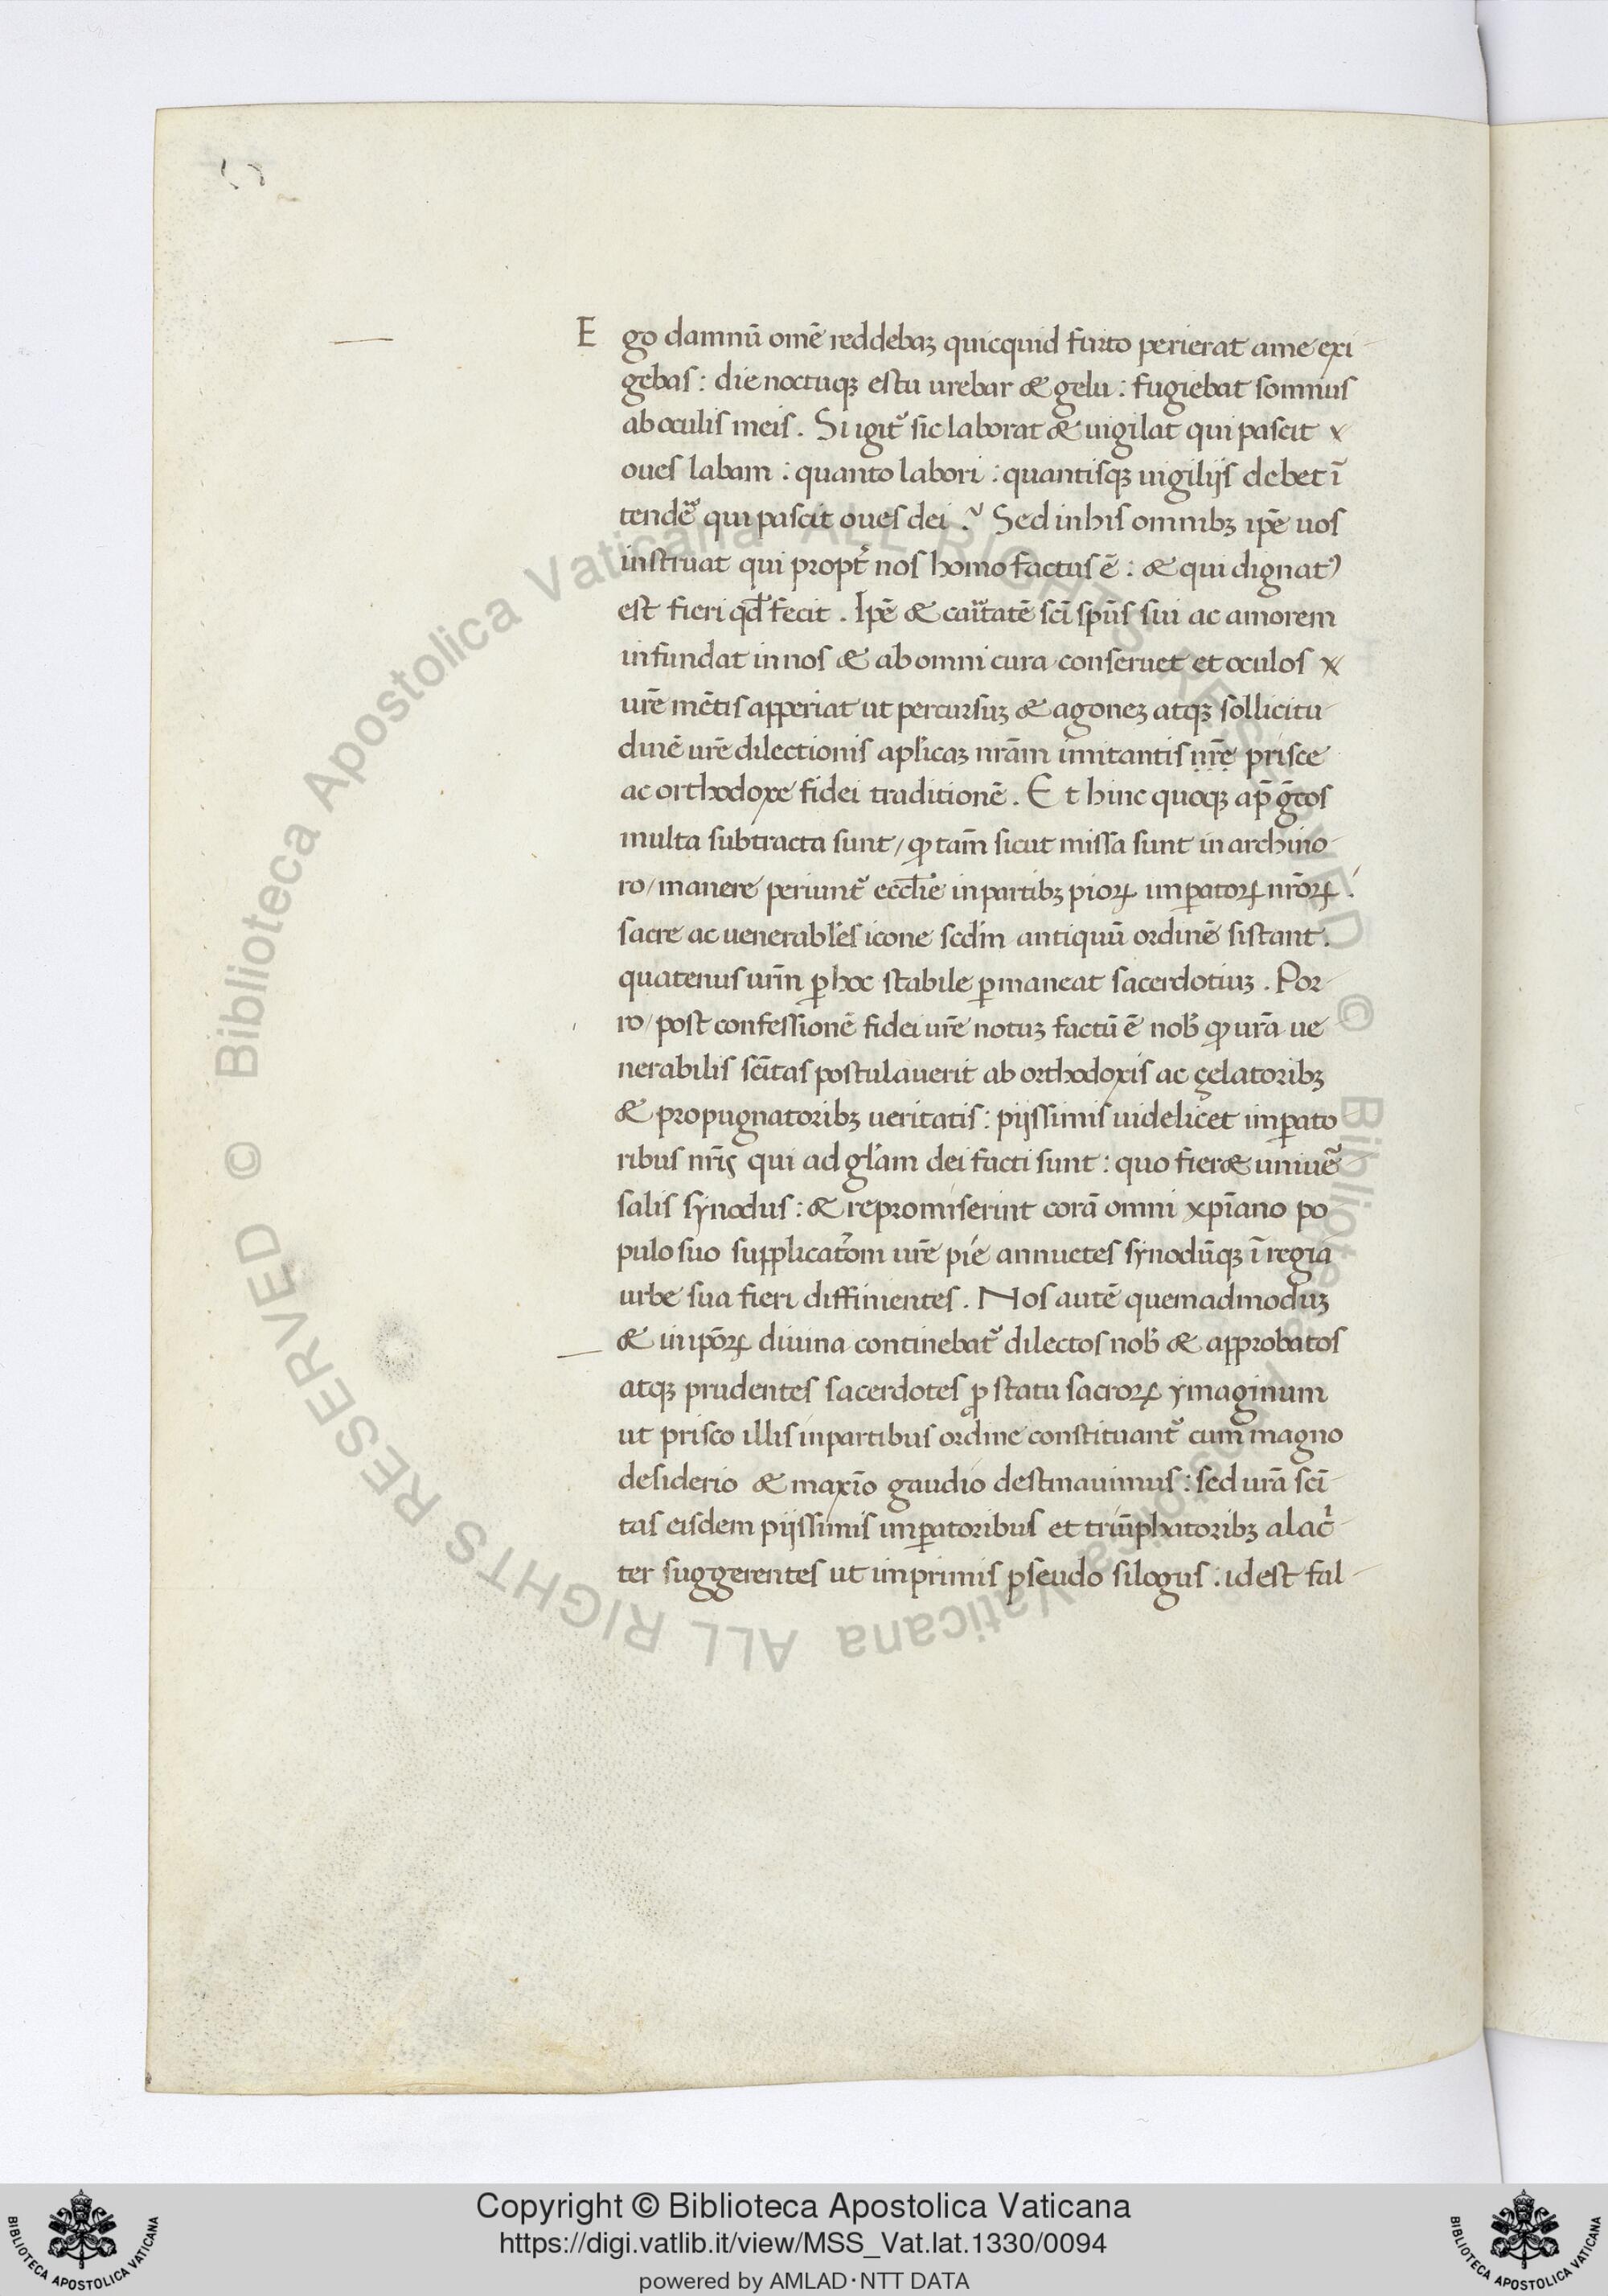 Ego damnū omē reddebaꝫ quicquid furto perierat ame exi-
gebas: die noctuqꝫ estu urebar & gelu: fugiebat somnus
ab oculis meis. Si igit᷑ sic laborat & uigilat qui pascit x
oues labam: quanto labori: quantisqꝫ uigilijs debet ī
tendē᷑ qui pascit oues dei? Sed in his omnibꝫ ip̄e uos
instruat qui propt᷑ nos homo factus ē: & qui dignat᷒
est fieri qd̄ fecit. Ip̄e & caritatē sc̄i sp̄us sui ac amorem
infundat in nos & ab omni cura conseruet et oculos x
ur̄e mētis apperiat ut percursuꝫ & agoneꝫ atqꝫ sollicitu-
dinē ur̄e dilectionis apl̄icaꝫ nr̄am imitantis nr̄e prisce
ac orthodoxe fidei traditionē. Et hinc quoqꝫ ap̄ ḡcos
multa subtracta sunt / ꝙ tam̄ sicut missa sunt in archiuo-
ro / manere periunt᷑ eccl̄ie in partibꝫ pioꝝ imꝑatoꝝ nr̄oꝝ.
sacre ac uenerabl̄es icone scd̄m antiquū ordinē sistant.
quatenus urm̄ ꝑ hoc stabile ꝑmaneat sacerdotiuꝫ. Por-
ro / post confessionē fidei ur̄e notuꝫ factū ē nob̄ ꝙ ur̄a ue
nerabilis sc̄itas postulauerit ab orthodoxis ac çelatoribꝫ
& propugnatoribꝫ ueritatis: pijssimis uidelicet imꝑato
ribus nr̄is qui ad gl̄am dei facti sunt: quo fier& uniuē-
salis synodus: & repromiserint corā omni xp̄iano po
pulo suo supplicatōm ur̄e pie annuetes synodūqꝫ ī regia
urbe sua fieri diffinientes. Nos autē quemadmoduꝫ
& inpōꝝ diuina continebat᷑ dilectos nob̄ & approbatos
atqꝫ prudentes sacerdotes ꝓ statu sacroꝝ ymaginum
ut prisco illis in partibus ordine constituant᷑ cum magno
desiderio & maxīo gaudio destinauimus: sed ur̄a sc̄i-
tas eisdem pijssimis imꝑatoribus et triūphatoribꝫ alac᷑-
ter suggerentes ut imprimis pseudo silogus. id est fal-
Copyright © Biblioteca Apostolica Vaticana
https://digi.vatlib.it/view/MSS_Vat.lat.1330/0094
powered by AMLAD·NTT DATA
© Biblioteca Apostolica Vaticana ALL RIGHTS RESERVED
© Biblioteca Apostolica Vaticana ALL RIGHTS RESERVED
BIBLIOTECA APOSTOLICA VATICANA
BIBLIOTECA APOSTOLICA VATICANA